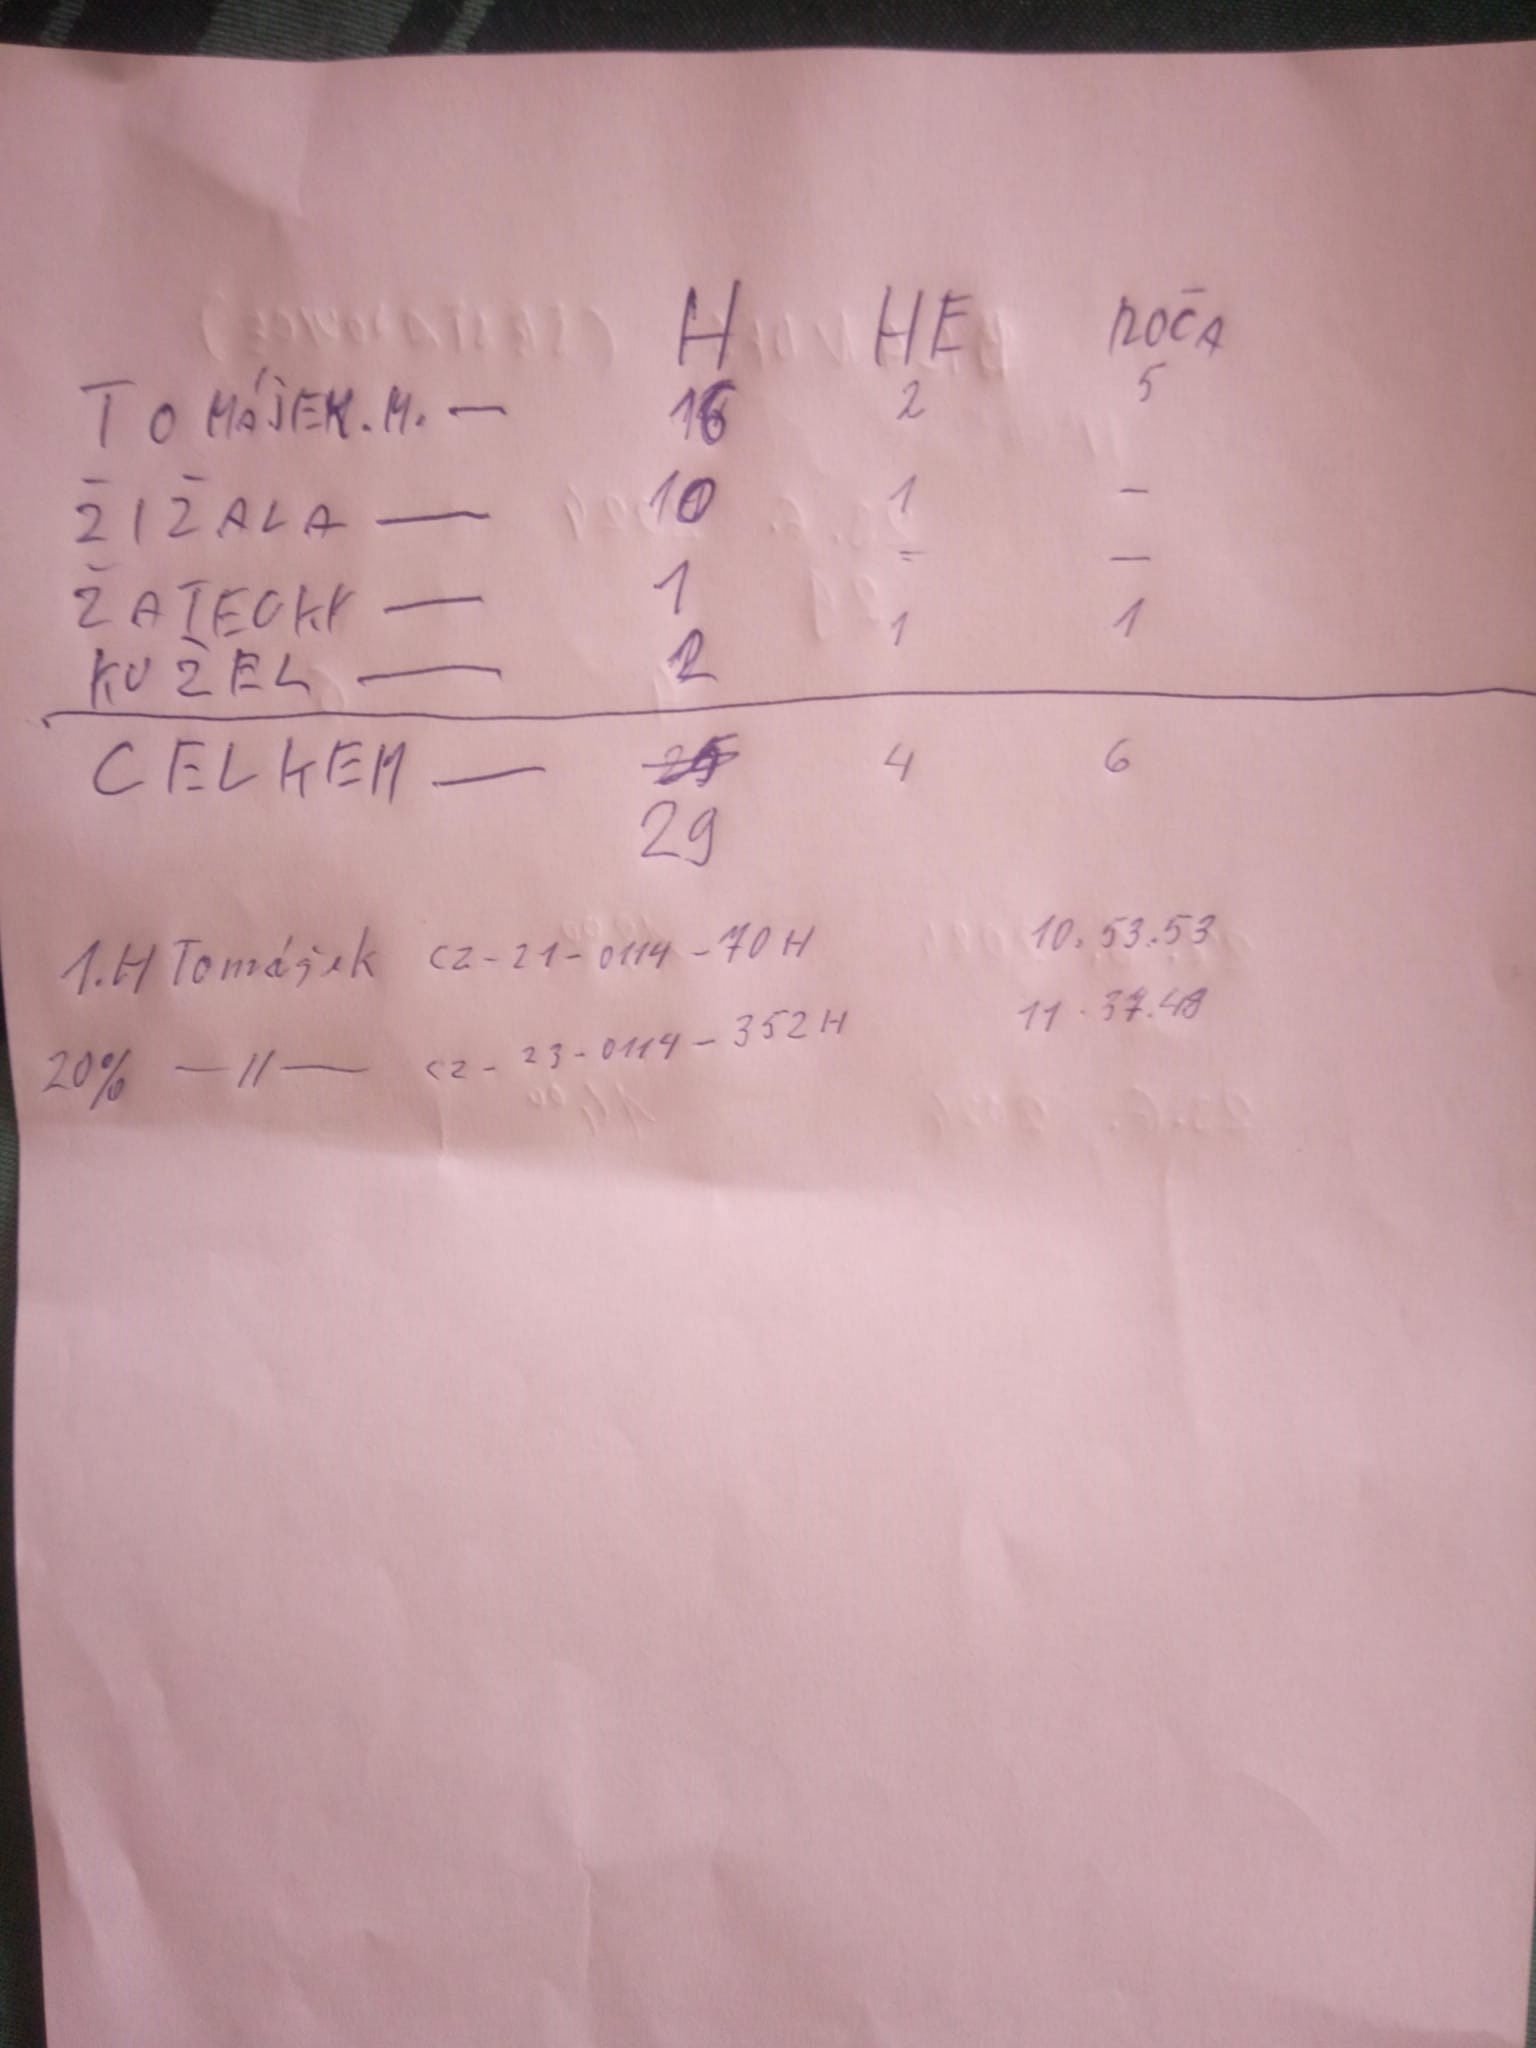 H HE ROČA
TOMÁJEK.M. — 16 2 5
ŽIŽALA — 10 1 —
ŽATECKY — 1 - —
KUŽEL — 2 1 1
CELKEM — 4 6
29
1.H Tomájek CZ-21-0114-70H 10.53.53
20% —11— CZ-23-0114-352H 11.37.48